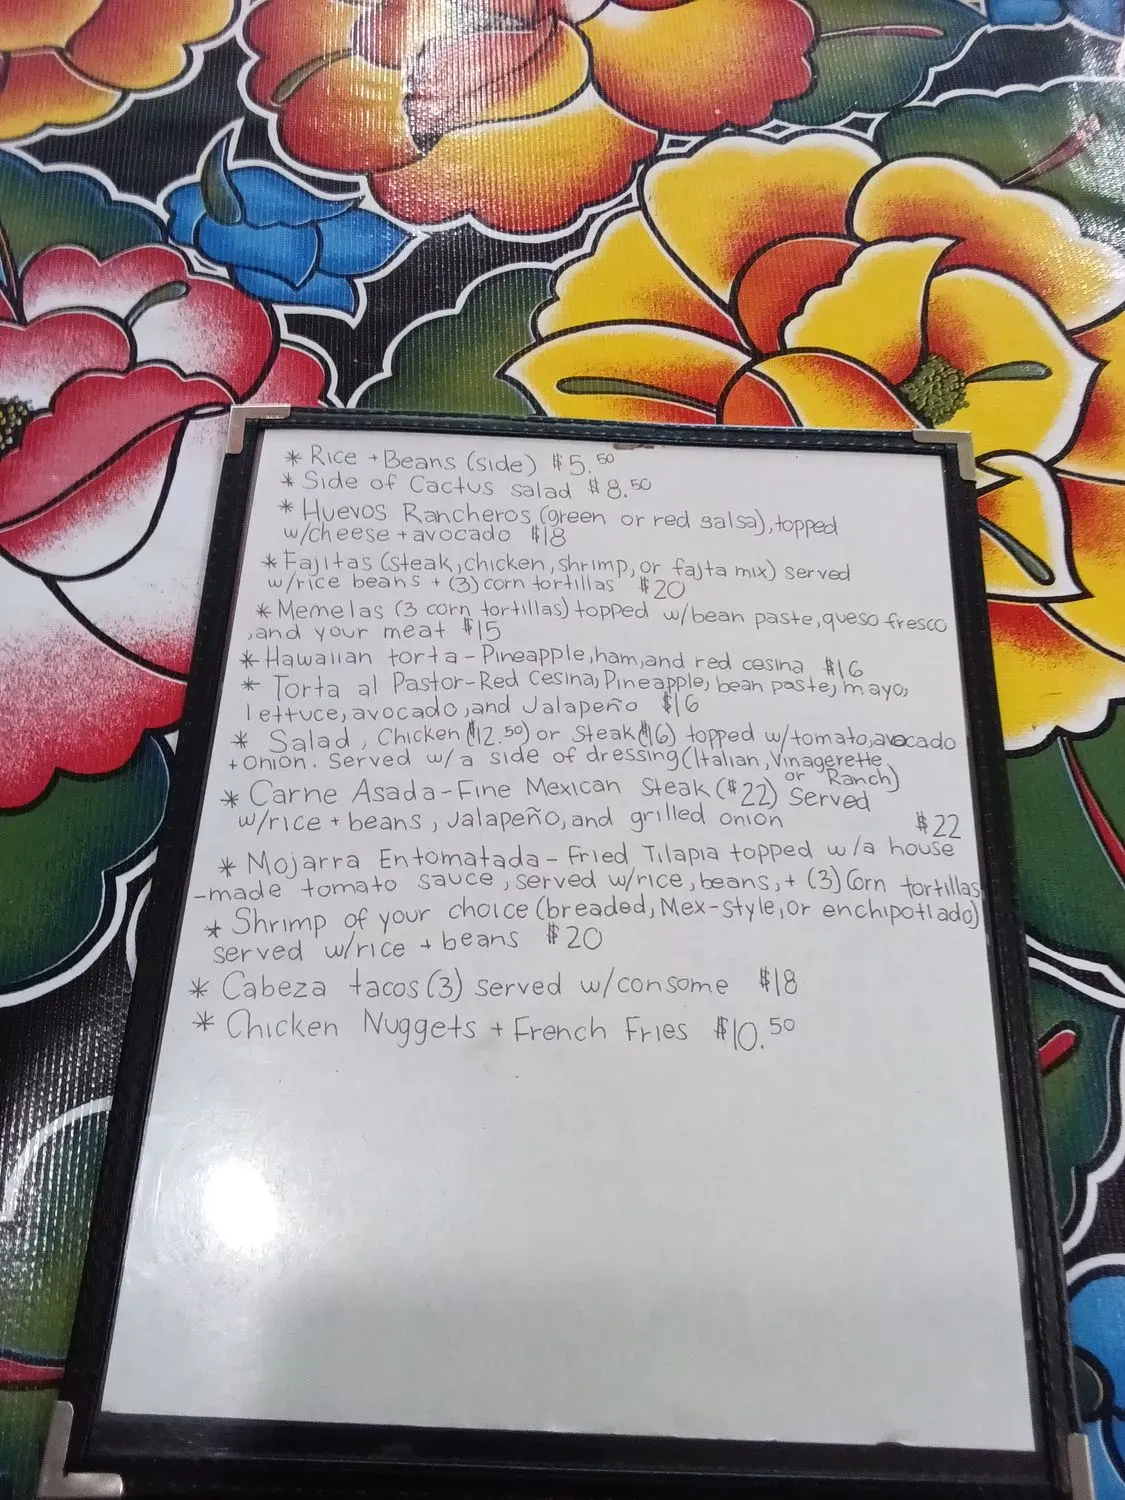 * Rice + Beans (side) $5.50
* Side of Cactus salad $8.50
* Huevos Rancheros (green or red salsa), topped
w/cheese + avocado $18
* Fajitas (steak, chicken, shrimp, or fajta mix) served
w/rice beans + (3) corn tortillas $20
* Memelas (3 corn tortillas) topped w/bean paste, queso fresco
, and your meat $15
* Hawaiian torta - Pineapple, ham, and red cesina $16
* Torta al Pastor - Red Cesina, Pineapple, bean paste, mayo,
lettuce, avocado, and Jalapeño $16
* Salad, Chicken ($12.50) or Steak ($16) topped w/tomato, avocado
+ onion. Served w/ a side of dressing (Italian, Vinagerette,
or Ranch)
* Carne Asada - Fine Mexican Steak ($22) Served
w/rice + beans, Jalapeño, and grilled onion
$22
* Mojarra Entomatada - Fried Tilapia topped w/a house
-made tomato sauce, served w/rice, beans, + (3) Corn tortillas
* Shrimp of your choice (breaded, Mex-Style, or enchipotlado)
served w/rice + beans $20
* Cabeza tacos (3) served w/consome $18
* Chicken Nuggets + French Fries $10.50